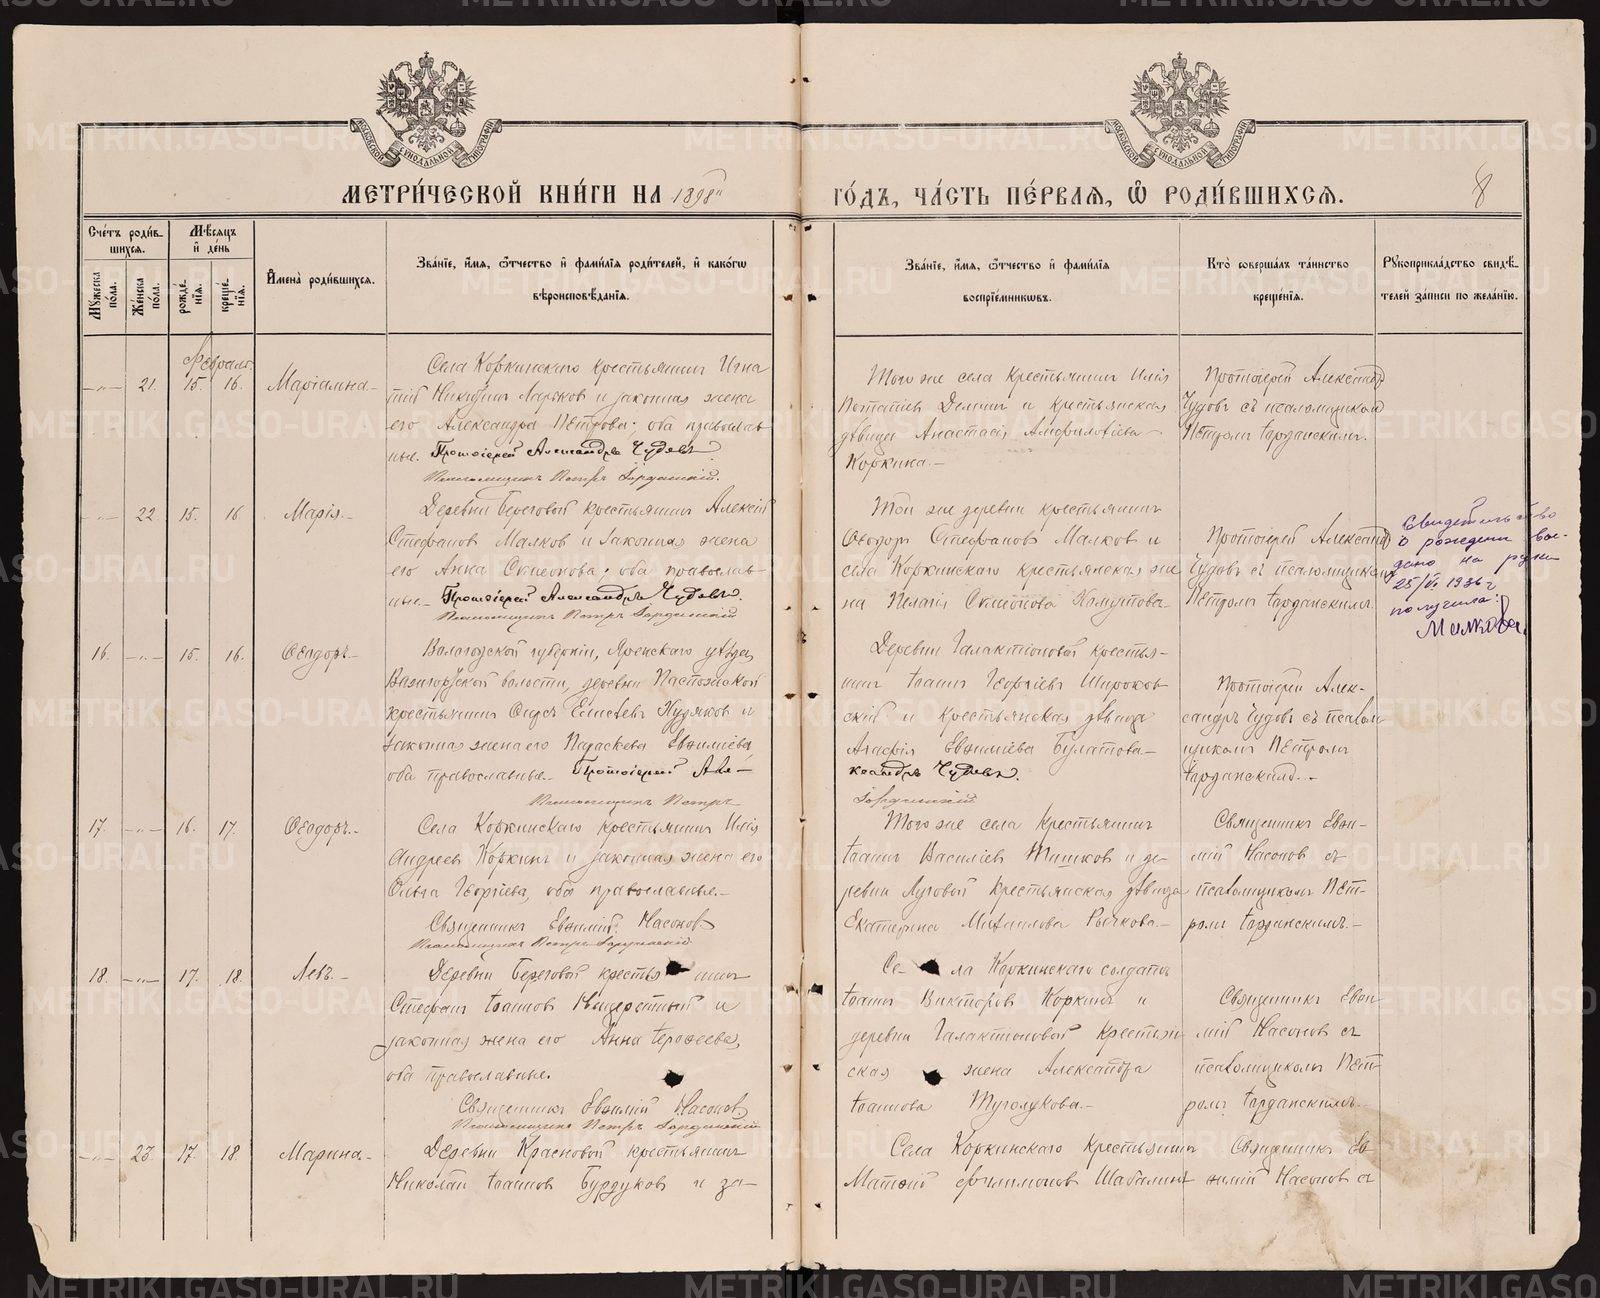 МЕТРИ́ЧЕСКОЙ КНИ́ГИ НА 1898й
ГО́ДЪ, ЧА́СТЬ ПЕ́РВАЯ, Ѡ РОДИ́ВШИХСЯ.
8
Сче́тъ роди́в-
шихся.
Мѣ́сяцъ
и де́нь
Мꙋжеска по́ла.
Же́нска по́ла.
рожде́-
нїя.
креще́-
нїя.
И҆мена̀ роди́вшихся.
Зва́нїе, и҆́мя, ѻ҆́тчество и҆ фами́лїя роди́телей, и҆ како́гѡ
вѣроисповѣ́данїя.
Зва́нїе, и҆́мя, ѻ҆́тчество и҆ фами́лїя
воспрїе́мникѡвъ.
Кто̀ соверша́лъ та́инство
креще́нїя.
Рꙋкоприкла́дство свидѣ́-
телей за́писи по жела́нїю.
Февраль.
-"- 21. 15. 16. Маріамна-
Села Коркинскаго крестьянинъ Игна
тій Никитинъ Ларьков и законная жена
его Александра Петрова; оба православ-
ные. Протоіерей Александръ Чудовъ.
Псаломщикъ Петръ Гарданскій.
Того же села крестьянинъ Илія
Потапіев Демин и крестьянская
дѣвица Анастасія Амфилохіева
Коркина.-
Протоіерей Александр
Чудовъ съ псаломщиком
Петромъ Гарданскимъ.
-"- 22 15. 16 Марія.-
Деревни Береговой крестьянинъ Алексій
Стефанов Малков и законная жена
его Анна Симеонова; оба православ-
ные.- Протоіерей Александръ Чудовъ.
Псаломщикъ Петръ Гарданскій
Той же деревни крестьянинъ
Ѳеодоръ Стефанов Малков и
села Коркинскаго крестьянская же
на Пелагія Симеонова Хомутова-
Протоіерей Александр
Чудовъ съ псаломщиком
Петромъ Гарданскимъ.
Свидетельство
о рождени вы-
дано на руки
25/VI 1936 г
получила:
Малкова
16. -"- 15. 16. Ѳеодоръ-
Вологодской губерніи, Яренскаго уѣзда,
волости, деревни
крестьянинъ Елисѣев Худяков и
законная жена его Параскева Евѳиміева
оба православные- Протоіерей Але-
Псаломщикъ Петръ
Деревни Галактіоновой крестья-
нинъ Іоаннъ Георгіевъ Широков
скій и крестьянская дѣвица
Агафія Евѳиміева Булатова-
ксандръ Чудовъ.
Гарданскій
Протоіерей Алек-
сандръ Чудовъ съ псалом
щикомъ Петромъ
Гарданским.-
17. -"- 16. 17. Ѳеодоръ.-
Села Коркинскаго крестьянинъ Илія
Андреев Коркинъ и законная жена его
Ольга Георгіева, оба православные.-
Священникъ Евѳимій Насонов
Псаломщикъ Петръ Гарданскій
Того же села крестьянинъ
Іоаннъ Василіев Тишков и де-
ревни Луговой крестьянская дѣвица
Екатерина Михаилова Рычкова.-
Священникъ Евѳи-
мій Насонов съ
псаломщикомъ Пет-
ромъ Гарданскимъ.-
18. -"- 17. 18. Левъ.-
Деревни Береговой крестьянинъ
Стефанъ Іоаннов и
законная жена его Анна Ероѳеева,
оба православные.
Священникъ Евѳимій Насонов
Псаломщикъ Петръ Гарданскій
Се- ла Коркинскаго солдатъ
Іоаннъ Викторов Коркинъ и
деревни Галактіоновой крестьян
ская жена Александра
Іоаннова Туголукова.-
Священникъ Евѳи
мій Насонов съ
псаломщикомъ Пет
ромъ Гарданскимъ.-
-"- 23. 17. 18. Марина-
Деревни Красновой крестьянинъ
Николай Іоаннов Бурдуков и за-
Села Коркинскаго крестьянинъ
Матѳій Филимонов Шабалинъ
Священникъ Ев
ѳимій Насонов съ
METRIKI.GASO-URAL.RU